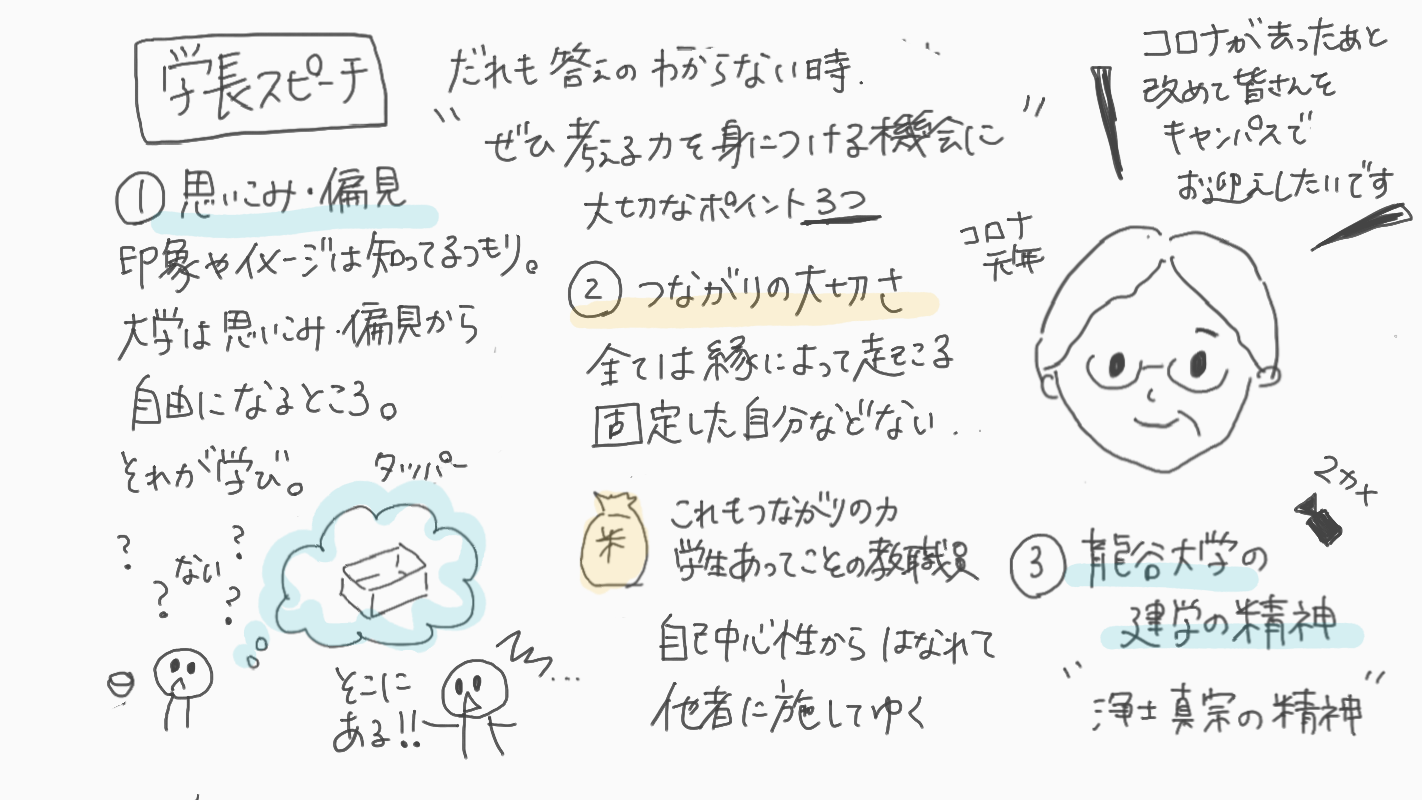 学長スピーチ
だれも答えのわからない時.
"ぜひ考える力を身につける機会に"
大切なポイント3つ
コロナが去ったあと
改めて皆さんを
キャンパスで
お迎えしたいです
コロナ
元年
① 思いこみ・偏見
印象やイメージは知ってるつもり。
大学は思いこみ・偏見から
自由になるところ。
それが学び。
タッパー
?
?
ない
?
?
そこに
ある!!
② つながりの大切さ
全ては縁によって起こる
固定した自分などない.
米
これもつながりの力
学生あってことの教職員
自己中心性からはなれて
他者に施してゆく
2カ
③ 龍谷大学の
建学の精神
"浄土真宗の精神"